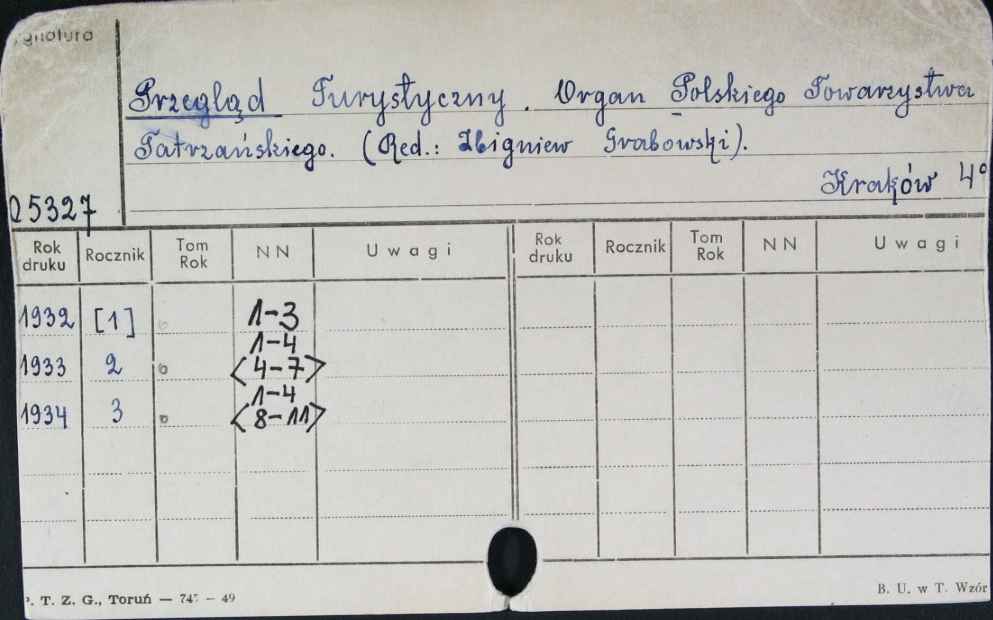 ygnatura
Przegląd Turystyczny. Organ Polskiego Towarzystwa
Tatrzańskiego. (Red.: Zbigniew Grabowski).
Kraków 4°
05327
Rok druku Rocznik Tom Rok NN Uwagi Rok druku Rocznik Tom Rok NN Uwagi
1932 [1] o 1-3
1-4
1933 2 o <4-7>
1-4
1934 3 o <8-11>
P. T. Z. G., Toruń — 747 — 49
B. U. w T. Wzór